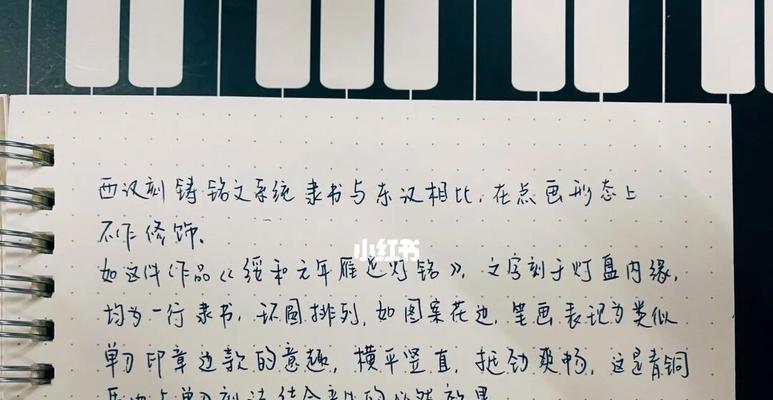 西汉刻铸铭文系统隶书与东汉相比,在点画形态上
不作修饰。
小红书
如这件作品《绥和元年雁足灯铭》,文字刻于灯盘内缘,
均为一行隶书,环圆排列,如图案花边,笔画表现为类似
单刀印章边款的意趣,横平竖直,挺劲爽畅,这是青铜
单刀刻法结合产生的必然效果